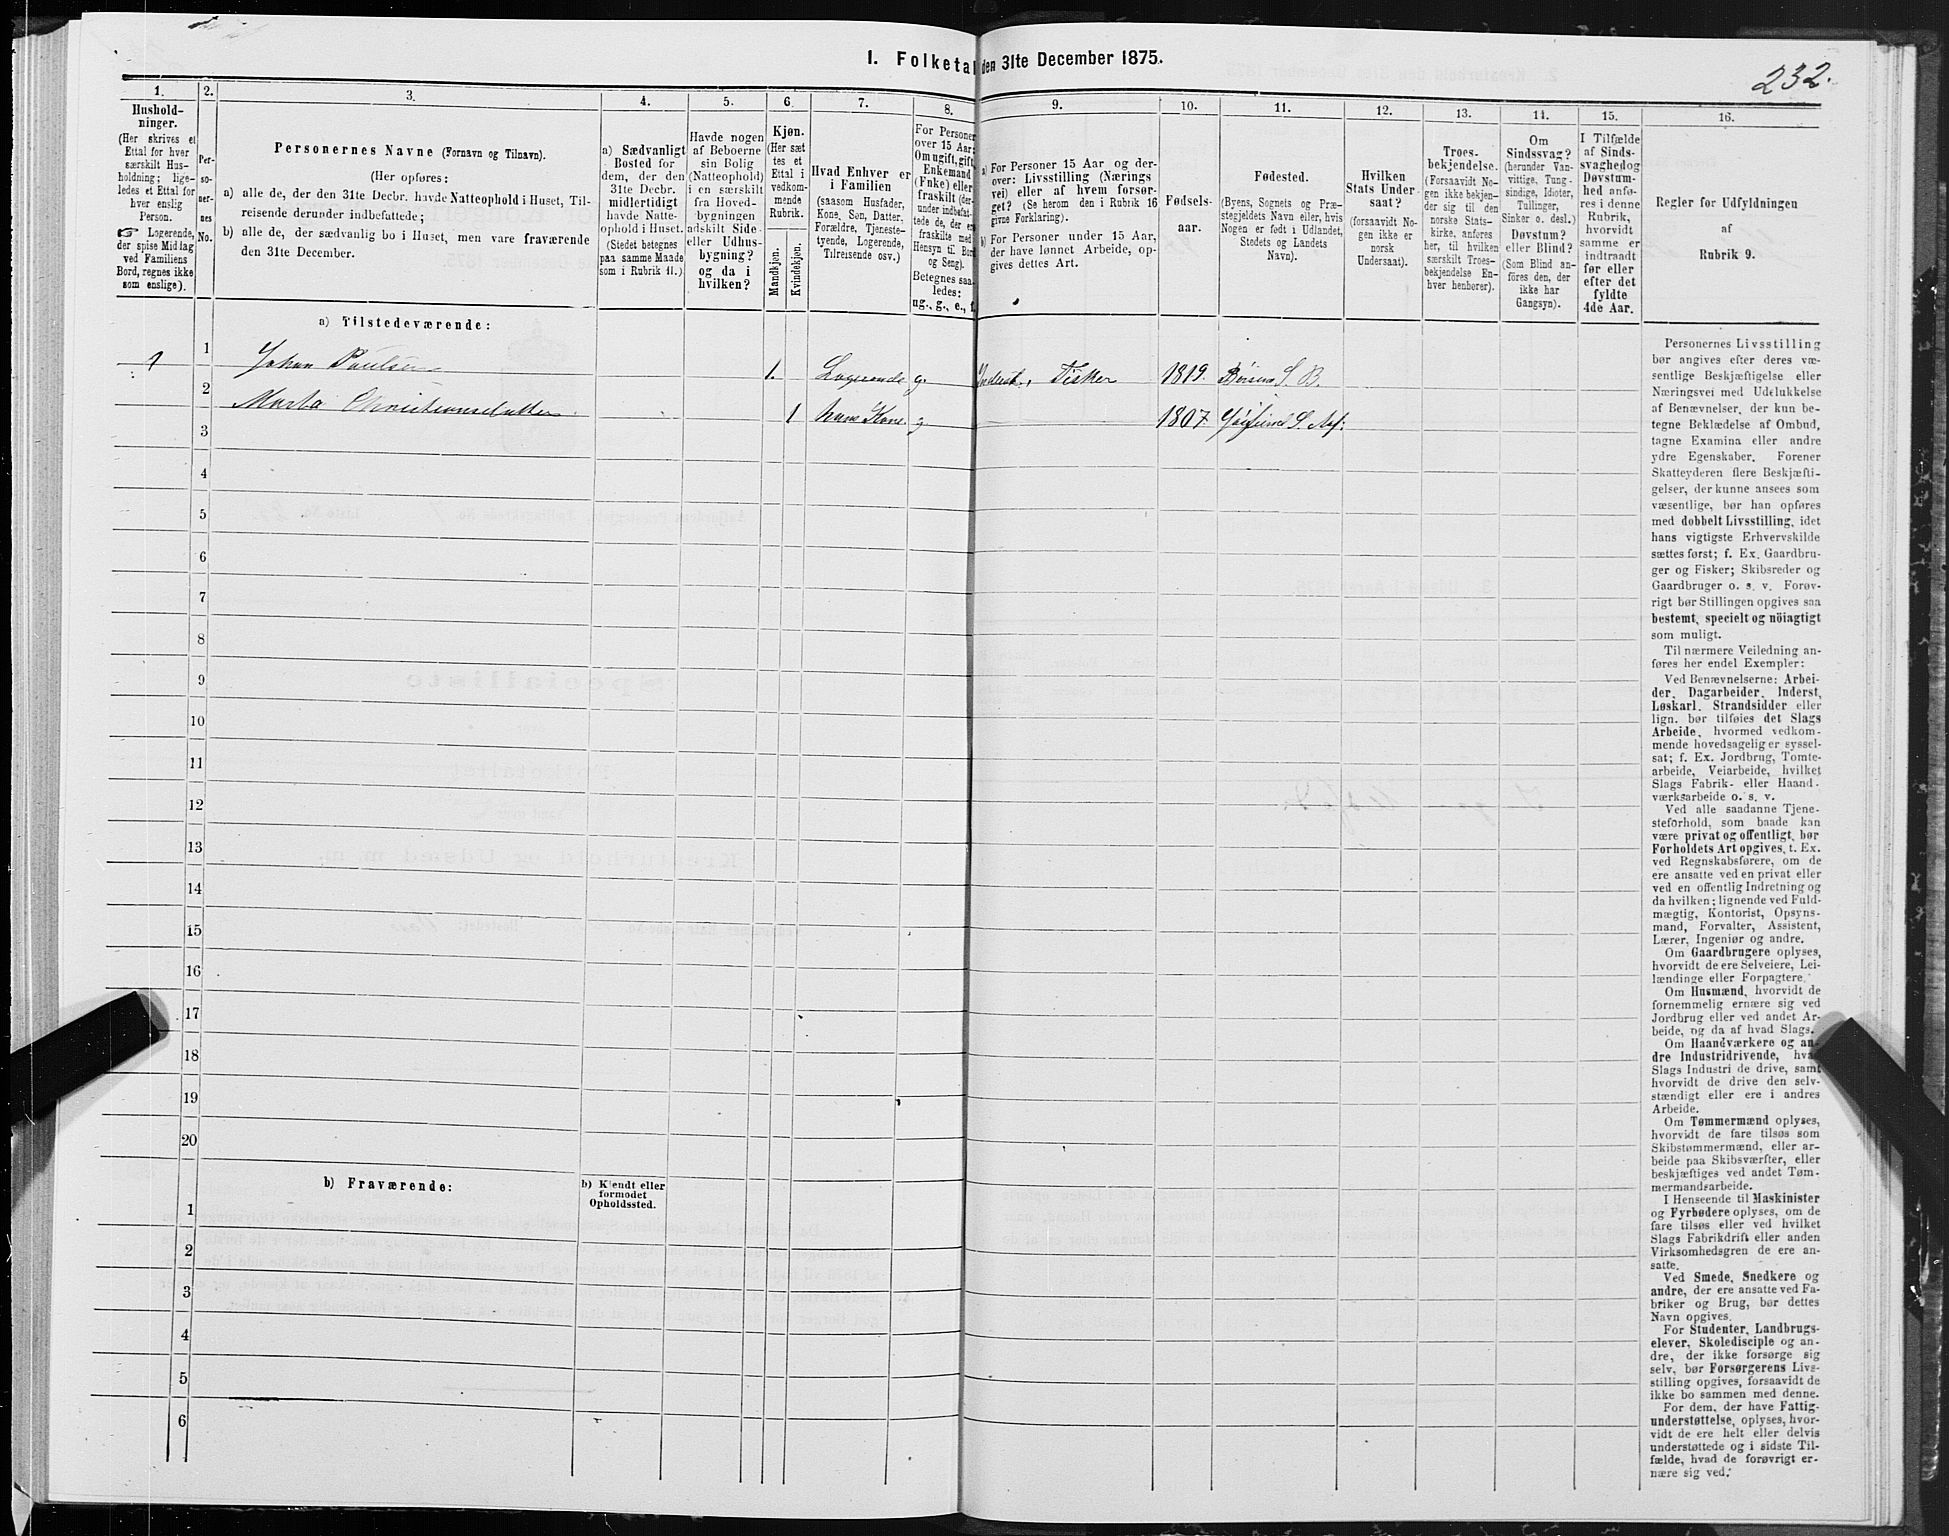 232.
1. Folketal den 31te December 1875.
1.
Hushold-
ninger.
(Her skrives et
Ettal for hver
særskilt Hus-
holdning; lige-
ledes et Ettal for
hver enslig
Person.
☞ Logerende,
der spise Middag
ved Familiens
Bord, regnes ikke
som enslige).
2.
Per-
so-
ner-
nes
No.
3.
Personernes Navne (Fornavn og Tilnavn).
(Her opføres:
a) alle de, der den 31te Decbr. havde Natteophold i Huset, Til-
reisende derunder indbefattede;
b) alle de, der sædvanlig bo i Huset, men vare fraværende
den 31te December.
4.
a) Sædvanligt
Bosted for
dem, der den
31te Decbr.
midlertidigt
havde Natte-
ophold i Huset.
(Stedet betegnes
paa samme Maade
som i Rubrik 11.)
5.
Havde nogen
af Beboerne
sin Bolig
(Natteophold)
i en særskilt
fra Hoved-
bygningen
adskilt Side-
eller Udhus-
bygning?
og da i
hvilken?
6.
Kjøn.
(Her sæt
tes et
Ettal i
vedkom-
mende
Rubrik.
Mandkjøn.
Kvindekjøn.
7.
Hvad Enhver er
i Familien
(saasom Husfader,
Kone, Søn, Datter,
Forældre, Tjeneste-
tyende, Logerende,
Tilreisende osv.)
8.
For Personer
over 15 Aar:
Om ugift, gift,
Enkemand
(Enke) eller
fraskilt (der-
under indbefat-
tede de, der ere
fraskilte med
Hensyn til Bord
og Seng).
Betegnes saa-
ledes:
ug., g., e., f.
9.
a) For Personer 15 Aar og der-
over: Livsstilling (Nærings
vei) eller af hvem forsør-
get? (Se herom den i Rubrik 16
givne Forklaring).
b) For Personer under 15 Aar,
der have lønnet Arbeide, op-
gives dettes Art.
10.
Fødsels-
aar.
11.
Fødested.
(Byens, Sognets og Præ-
stegjeldets Navn eller, hvis
Nogen er født i Udlandet,
Stedets og Landets
Navn).
12.
Hvilken
Stats Under-
saat?
(forsaavidt No-
gen ikke er
norsk
Undersaat).
13.
Troes-
bekjendelse.
(Forsaavidt No-
gen ikke bekjen-
der sig til den
norske Stats-
kirke, anføres
her, til hvilken
særskilt Troes-
bekjendelse En-
hver henhører).
14.
Om
Sindssvag?
(herunder Van-
vittige, Tung-
sindige, Idioter,
Tullinger,
Sinker o. desl.)
Døvstum?
eller Blind?
(Som Blind an-
føres den, der
ikke har
Gangsyn).
15.
I Tilfælde
af Sinds-
svaghed og
Døvstum-
hed anfø-
res i denne
Rubrik,
hvorvidt
samme er
indtraadt
før eller
efter det
fyldte
4de Aar.
16.
Regler for Udfyldningen
af
Rubrik 9.
a) Tilstedeværende:
1 1 Johan Paulsen 1. Logerende g. Inderst, Fisker 1819. Børsens S. B.
2 Marta Christiansdatter 1 hans Kone. g. 1807 S.
3
4
5
6
7
8
9
10
11
12
13
14
15
16
17
18
19
20
b) Fraværende: b) Kjendt eller
formodet
Opholdssted.
1
2
3
4
5
6
Personernes Livsstilling
bør angives efter deres væ-
sentlige Beskjæftigelse eller
Næringsvei med Udelukkelse
af Benævnelser, der kun be-
tegne Beklædelse af Ombud,
tagne Examina eller andre
ydre Egenskaber. Forener
Skatteyderen flere Beskjæfti-
gelser, der kunne ansees som
væsentlige, bør han opføres
med dobbelt Livsstilling, idet
hans vigtigste Erhvervskilde
sættes først; f. Ex. Gaardbru-
ger og Fisker; Skibsreder og
Gaardbruger o. s. v. Forøv-
rigt bør Stillingen opgives saa
bestemt, specielt og nöiagtigt
som muligt.
Til nærmere Veiledning an-
føres her endel Exempler:
Ved Benævnelserne: Arbei-
der, Dagarbeider, Inderst,
Løskarl, Strandsidder eller
lign. bør tilføies det Slags
Arbeide, hvormed vedkom-
mende hovedsagelig er syssel-
sat; f. Ex. Jordbrug, Tomte-
arbeide, Veiarbeide, hvilket
Slags Fabrik- eller Haand-
værksarbeide o. s. v.
Ved alle saadanne Tjene-
steforhold, som baade kan
være privat og offentligt, bør
Forholdets Art opgives, t. Ex.
ved Regnskabsførere, om de
ere ansatte ved en privat eller
ved en offentlig Indretning og
da hvilken; lignende ved Fuld-
mægtig, Kontorist, Opsyns-
mand, Forvalter, Assistent,
Lærer, Ingeniør og andre.
Om Gaardbrugere oplyses,
hvorvidt de ere Selveiere, Lei-
lændinge eller Forpagtere.
Om Husmænd, hvorvidt de
fornemmelig ernære sig ved
Jordbrug eller ved andet Ar-
beide, og da af hvad Slags.
Om Haandværkere og an-
dre Industridrivende, hvad
Slags Industri de drive, samt
hvorvidt de drive den selv-
stændigt eller ere i andres
Arbeide.
Om Tømmermænd oplyses,
hvorvidt de fare tilsøs som
Skibstømmermænd, eller ar-
beide paa Skibsværfter, eller
beskjæftiges ved andet Tøm-
mermandsarbeide.
I Henseende til Maskinister
og Fyrbødere oplyses, om de
fare tilsøs eller ved hvilket
Slags Fabrikdrift eller anden
Virksomhedsgren de ere an-
satte.
Ved Smede, Snedkere og
andre, der ere ansatte ved Fa-
briker og Brug, bør dettes
Navn opgives.
For Studenter, Landbrugs-
elever, Skoledisciple og an-
dre, der ikke forsørge sig
selv, bør Forsørgerens Livs-
stilling opgives, forsaavidt de
ikke bo sammen med denne.
For dem, der have Fattig-
understøttelse, oplyses, hvor-
vidt de ere helt eller delvis
understøttede og i sidste Til-
fælde, hvad de forøvrigt er-
nære sig ved.